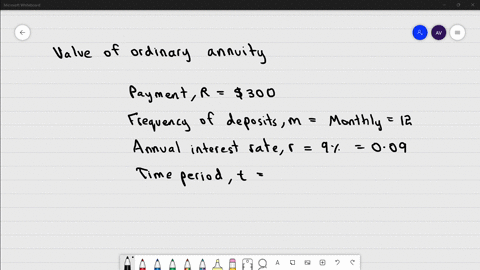 Microsoft Whiteboard
AV
Value of ordinary annuity
Payment, R = $300
Frequency of deposits, m = Monthly = 12
Annual interest rate, r = 9% = 0.09
Time period, t =